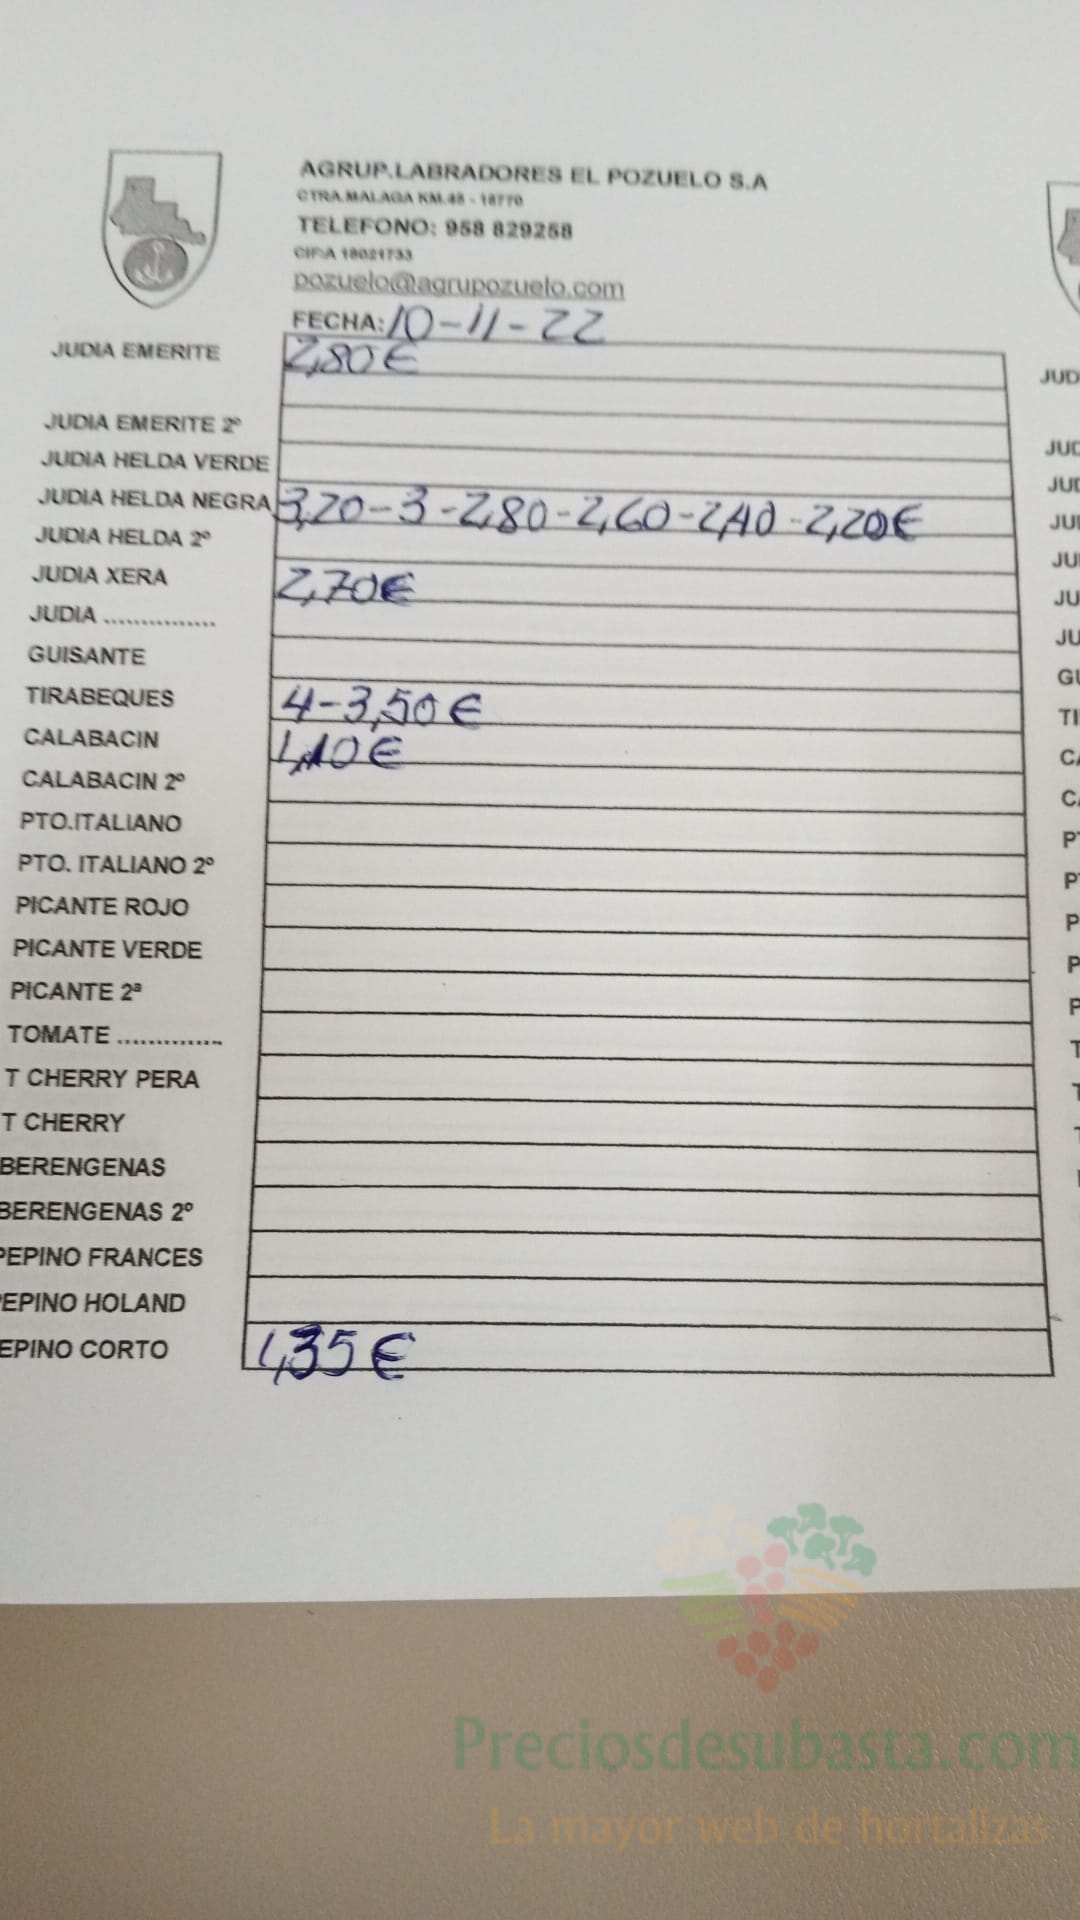 AGRUP.LABRADORES EL POZUELO S.A
CTRA.MALAGA KM.48 - 18770
TELEFONO: 958 829258
CIF:A 18021733
pozuelo@agrupozuelo.com
FECHA: 10-11-22
JUDIA EMERITE 2,80€
JUDIA EMERITE 2º
JUDIA HELDA VERDE
JUDIA HELDA NEGRA 3,20-3-2,80-2,60-2,40-2,20€
JUDIA HELDA 2º
JUDIA XERA 2,70€
JUDIA ...............
GUISANTE
TIRABEQUES 4-3,50€
CALABACIN 1,10€
CALABACIN 2º
PTO.ITALIANO
PTO. ITALIANO 2º
PICANTE ROJO
PICANTE VERDE
PICANTE 2ª
TOMATE ..............
T CHERRY PERA
T CHERRY
BERENGENAS
BERENGENAS 2º
PEPINO FRANCES
EPINO HOLAND
EPINO CORTO 1,35€
JUD
JUD
JUD
JUI
JU
JU
JU
GU
TI
CA
CA
PT
PT
P
P
P
T
T
T
Preciosdesubasta.com
La mayor web de hortalizas